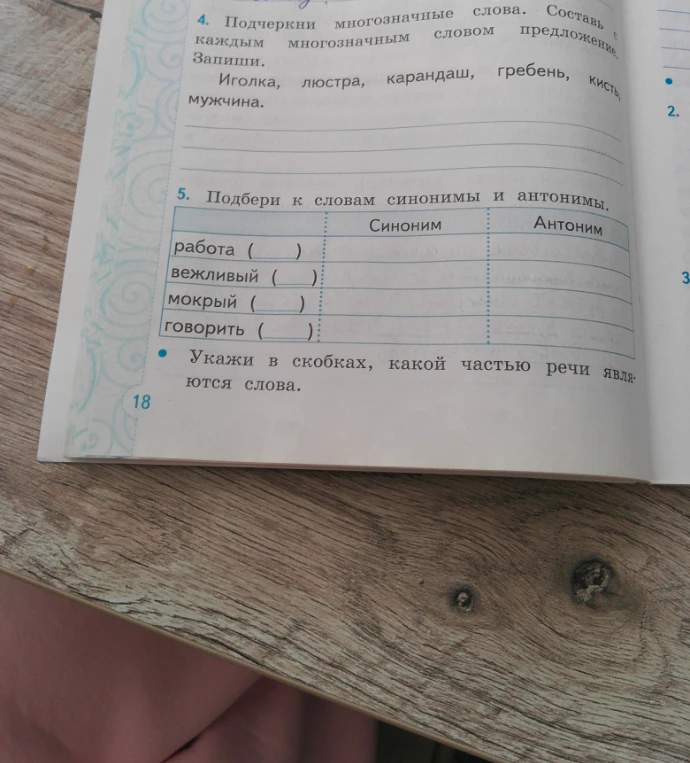 4. Подчеркни многозначные слова. Составь с
каждым многозначным словом предложение.
Запиши.
Иголка, люстра, карандаш, гребень, кисть,
мужчина.
5. Подбери к словам синонимы и антонимы.
Синоним Антоним
работа (___)
вежливый (___)
мокрый (___)
говорить (___)
• Укажи в скобках, какой частью речи явля-
ются слова.
18
2.
3